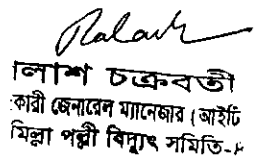 লাশ চক্রবর্তী
কারী জেনারেল ম্যানেজার (আইটি
মিল্লা পল্লী বিদ্যুৎ সমিতি-